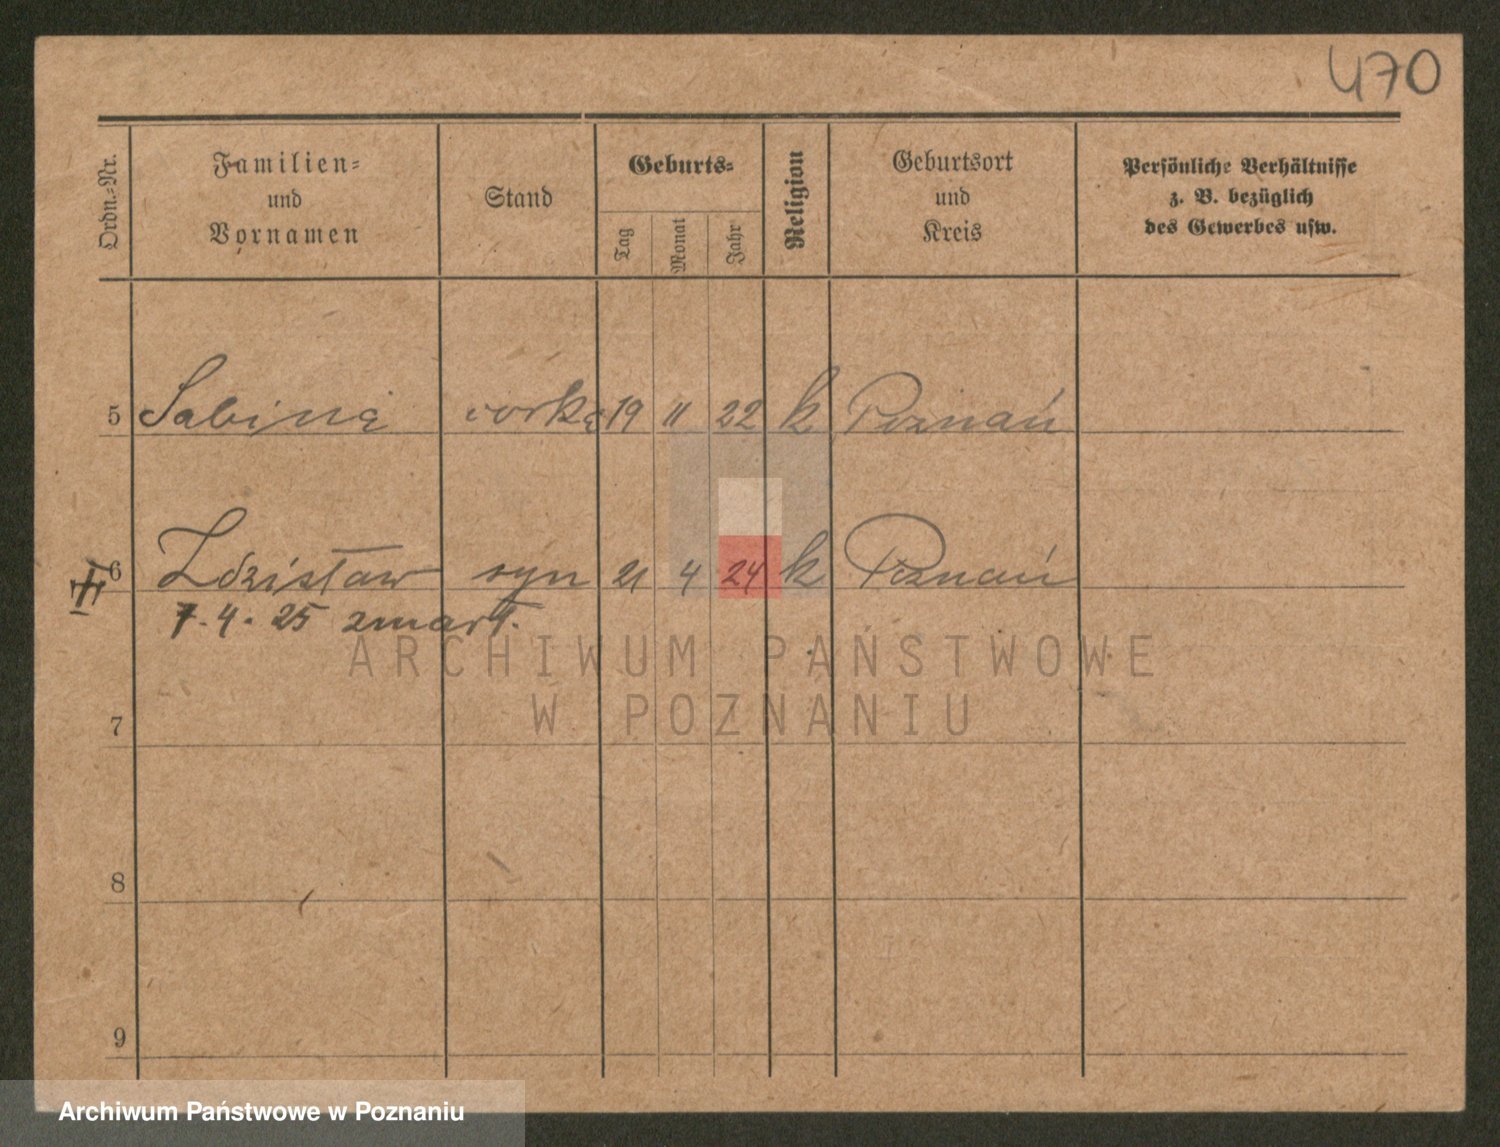 470
Ordn.-Nr.
Familien-
und
Vornamen
Stand
Geburts-
Tag
Monat
Jahr
Religion
Geburtsort
und
Kreis
Persönliche Verhältnisse
z. B. bezüglich
des Gewerbes usw.
5 Sabina córka 19 11 22 k Poznań
6 Zdzisław syn 21 4 24 k Poznań
7.4.25 zmarł.
ARCHIWUM PAŃSTWOWE
W POZNANIU
7
8
9
Archiwum Państwowe w Poznaniu